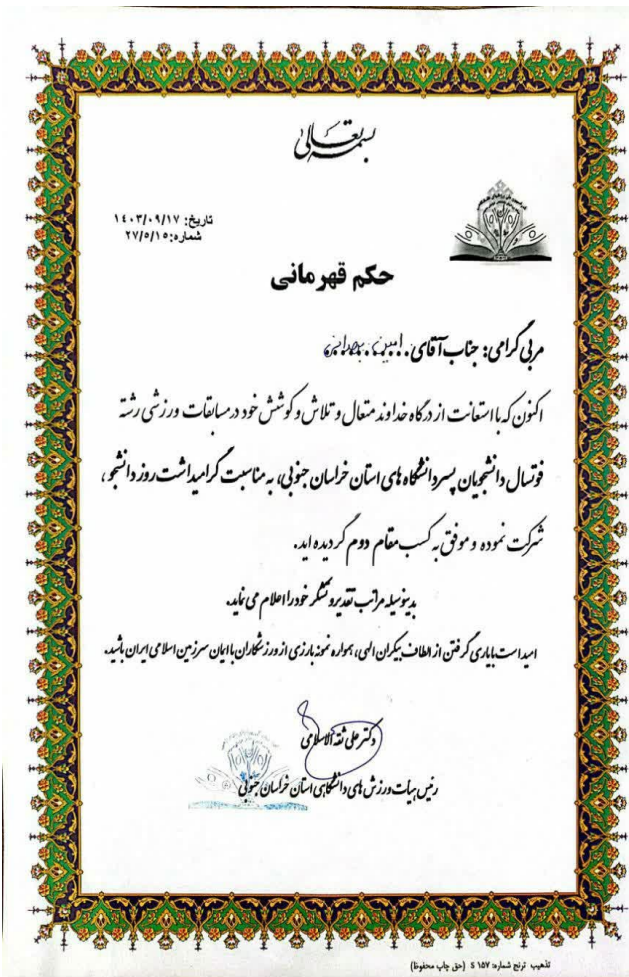 بسمه تعالی
تاریخ: ۱۴۰۳/۰۹/۱۷
شماره: ۲۷/۵/۱۵
حکم قهرمانی
مربی گرامی: جناب آقای امین
اکنون که با استعانت از درگاه خداوند متعال و تلاش و کوشش خود در مسابقات ورزشی رشته
فوتسال دانشجویان پسر دانشگاه های استان خراسان جنوبی، به مناسبت گرامیداشت روز دانشجو ،
شرکت نموده و موفق به کسب مقام دوم گردیده اید.
بدینوسیله مراتب تقدیر و تشکر خود را اعلام می نماید.
امید است با یاری گرفتن از الطاف بیکران الهی، همواره نمونه بارزی از ورزشکاران با ایمان سرزمین اسلامی ایران باشید.
دکتر علی ثقه الاسلامی
رئیس هیات ورزش های دانشگاهی استان خراسان جنوبی
تذهیب ترنج شماره: S ۱۵۷ (حق چاپ محفوظ)